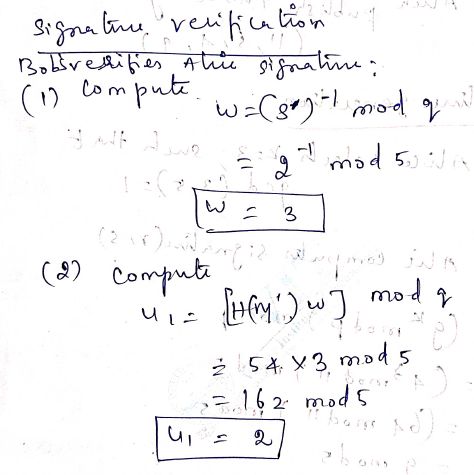 Signature verification
Bob verifies Alice signature:
(1) compute
w = (s')^-1 mod q
= 2^-1 mod 5
w = 3
(2) compute
u1 = [H(M') w] mod q
= 54 x 3 mod 5
= 162 mod 5
u1 = 2